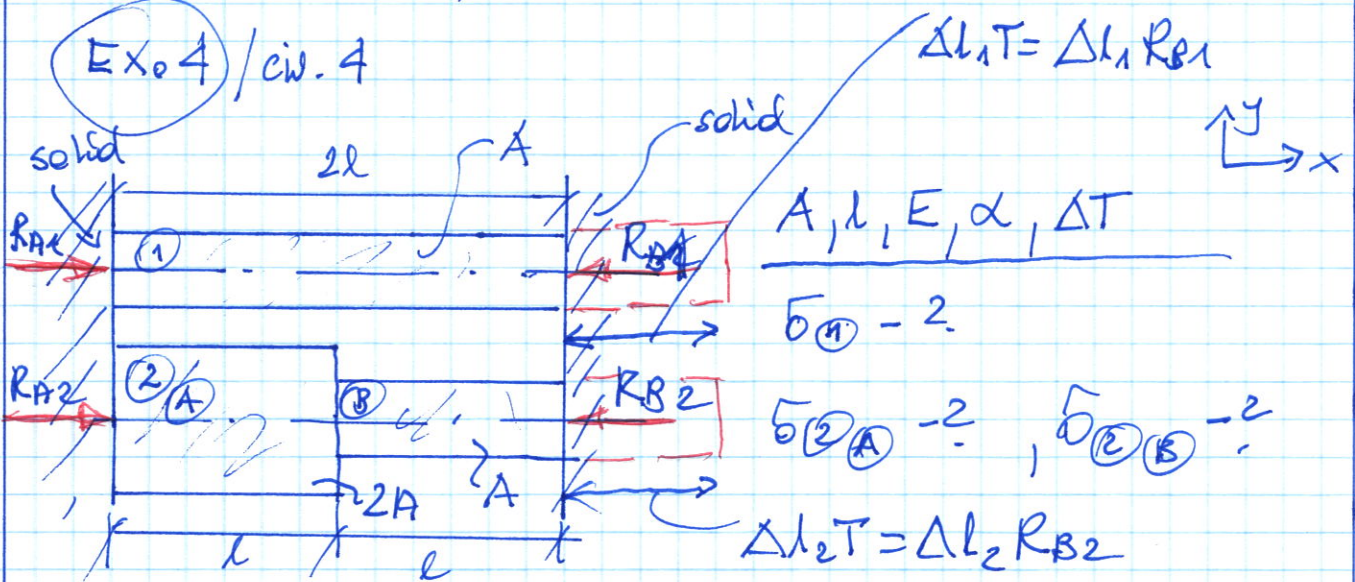 Ex. 4 / civ. 4
Δl₁T = Δl₁R_B1
solid
2l
A
solid
y
x
R_A1
①
R_B1
A, l, E, α, ΔT
σ① - ?
R_A2
② Ⓐ
Ⓑ
R_B2
σ②Ⓐ - ? , σ②Ⓑ - ?
2A
A
l
l
Δl₂T = Δl₂R_B2